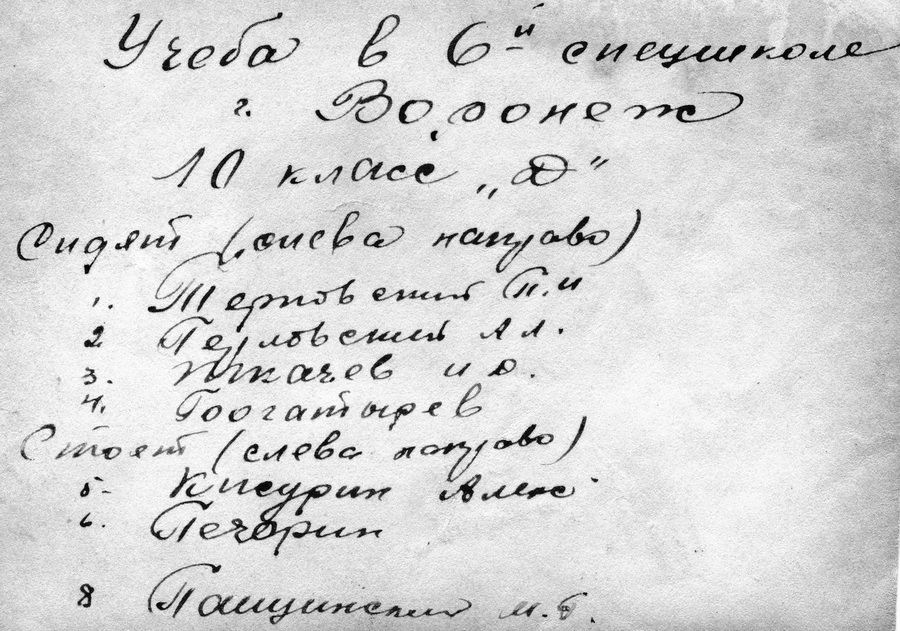 Учеба в 6й спецшколе
г. Воронеж
10 класс „Д"
Сидят (слева направо)
1. Терновский П.И
2. Ал.
3. Ткачев И О.
4. Богатырев
Стоят (слева направо)
5- Кисурин Алекс
6. Печорин
8 Пащинский М.Б.